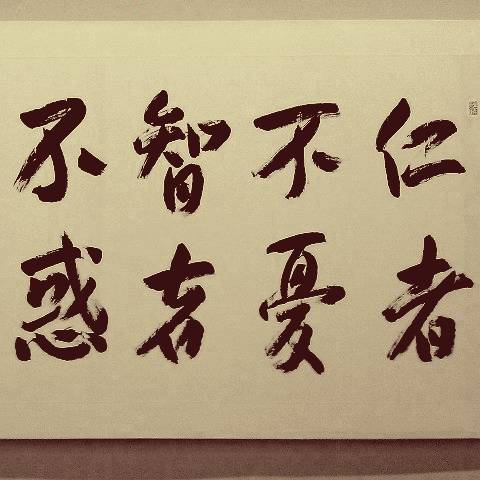 仁者
不憂
智者
不惑